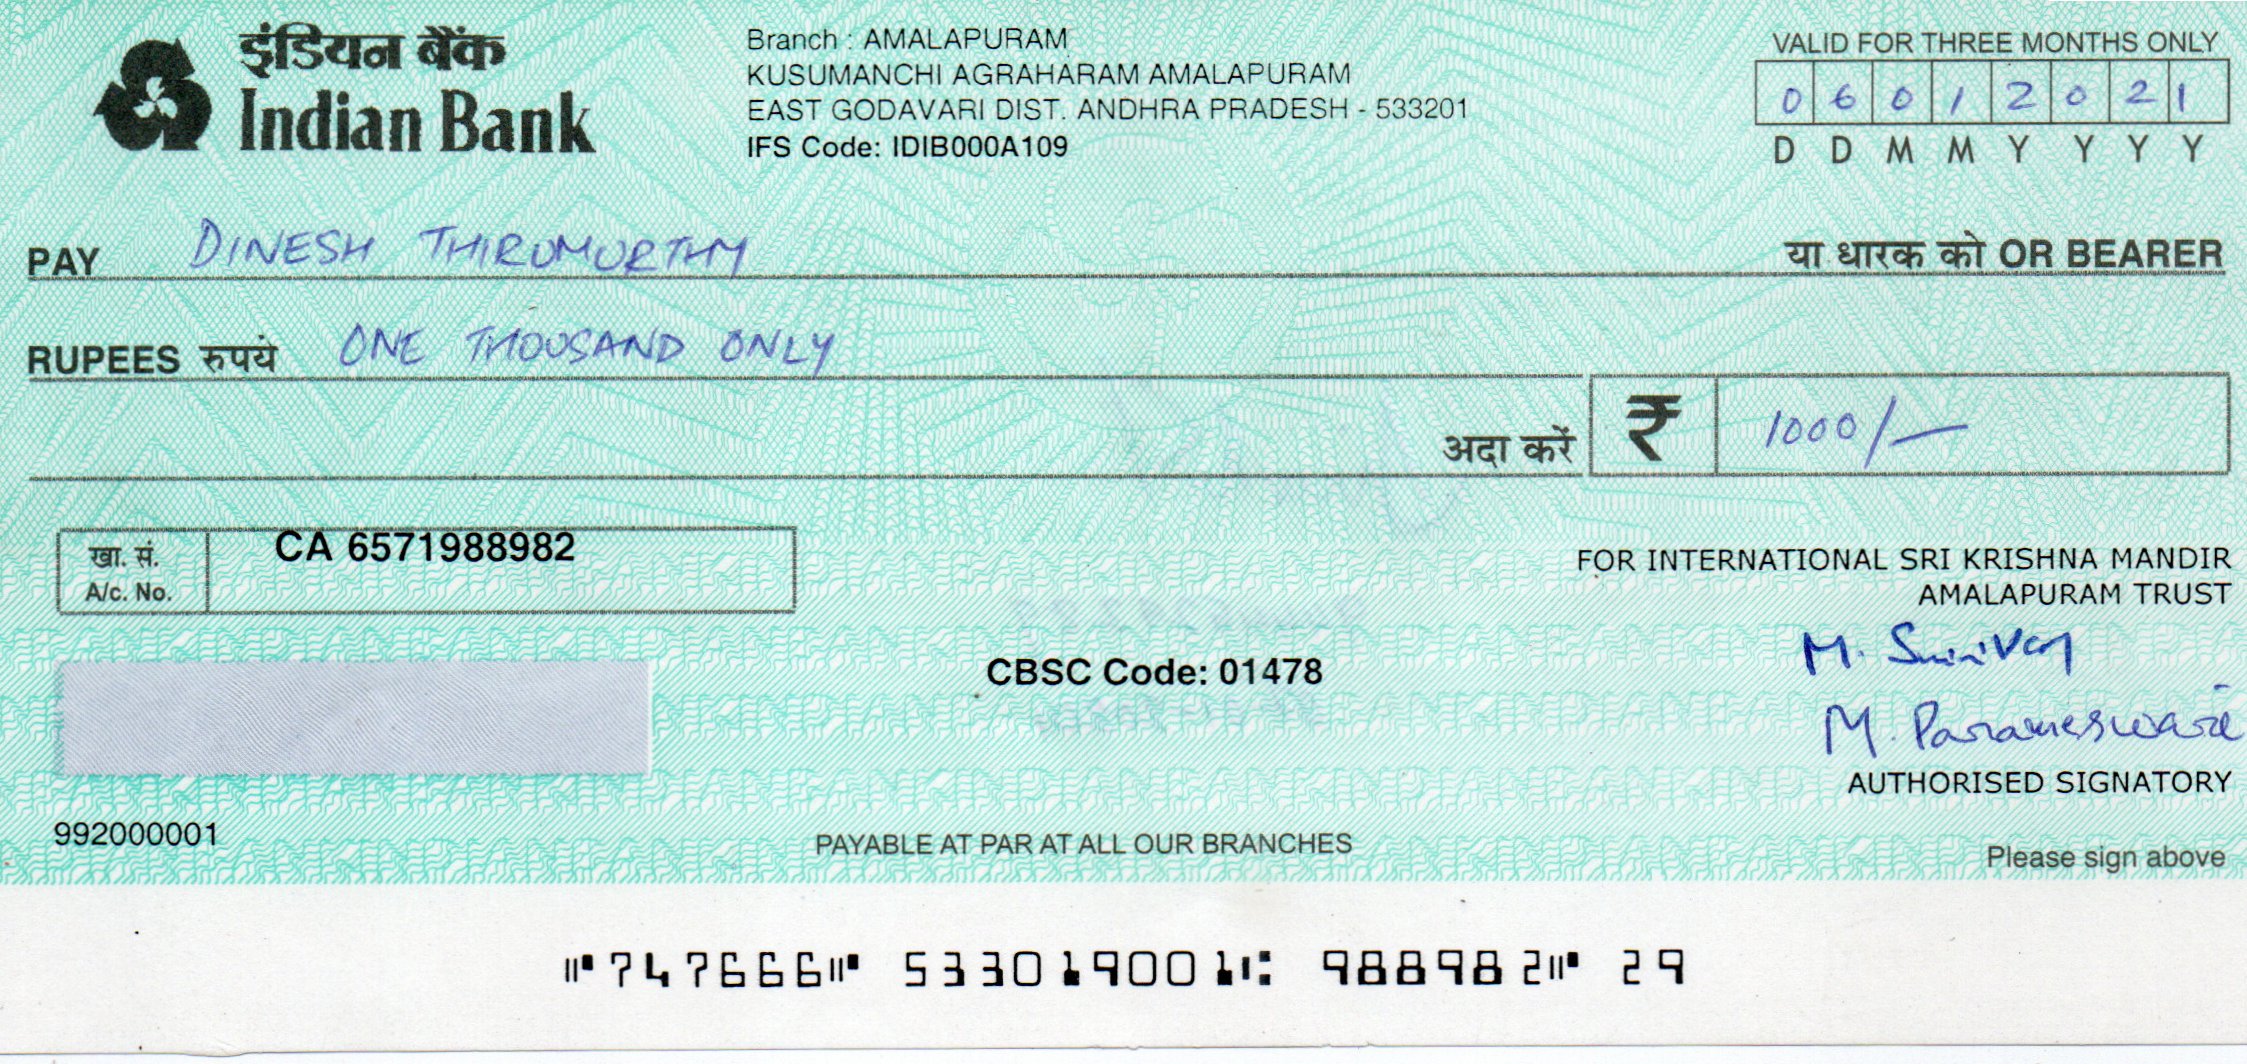 इंडियन बैंक
Indian Bank
Branch : AMALAPURAM
KUSUMANCHI AGRAHARAM AMALAPURAM
EAST GODAVARI DIST. ANDHRA PRADESH - 533201
IFS Code: IDIB000A109
VALID FOR THREE MONTHS ONLY
0 6 0 1 2 0 2 1
D D M M Y Y Y Y
PAY DINESH THIRUMURTHY या धारक को OR BEARER
RUPEES रुपये ONE THOUSAND ONLY
अदा करें ₹ 1000/-
खा. सं.
A/c. No.
CA 6571988982
FOR INTERNATIONAL SRI KRISHNA MANDIR
AMALAPURAM TRUST
CBSC Code: 01478
M. Srinivas
M. Parameswara
AUTHORISED SIGNATORY
992000001
PAYABLE AT PAR AT ALL OUR BRANCHES
Please sign above
⑈747666⑈ 533019001⑆ 988982⑈ 29